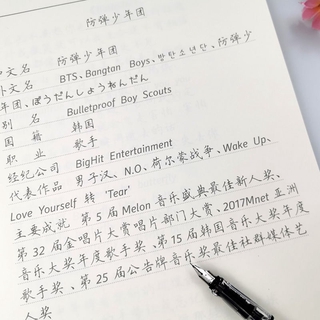 防弹少年团
中文名 防弹少年团
外文名 BTS、Bangtan Boys、방탄소년단、防弹少
年团、ぼうだんしょうねんだん
别 名 Bulletproof Boy Scouts
国 籍 韩国
职 业 歌手
经纪公司 BigHit Entertainment
代表作品 男子汉、N.O、荷尔蒙战争、Wake Up、
Love Yourself 转 'Tear'
主要成就 第5届Melon音乐盛典最佳新人奖、
第32届金唱片大赏唱片部门大赏、2017Mnet亚洲
音乐大奖年度歌手奖、第15届韩国音乐大奖年度
歌手奖、第25届公告牌音乐奖最佳社群媒体艺
人奖